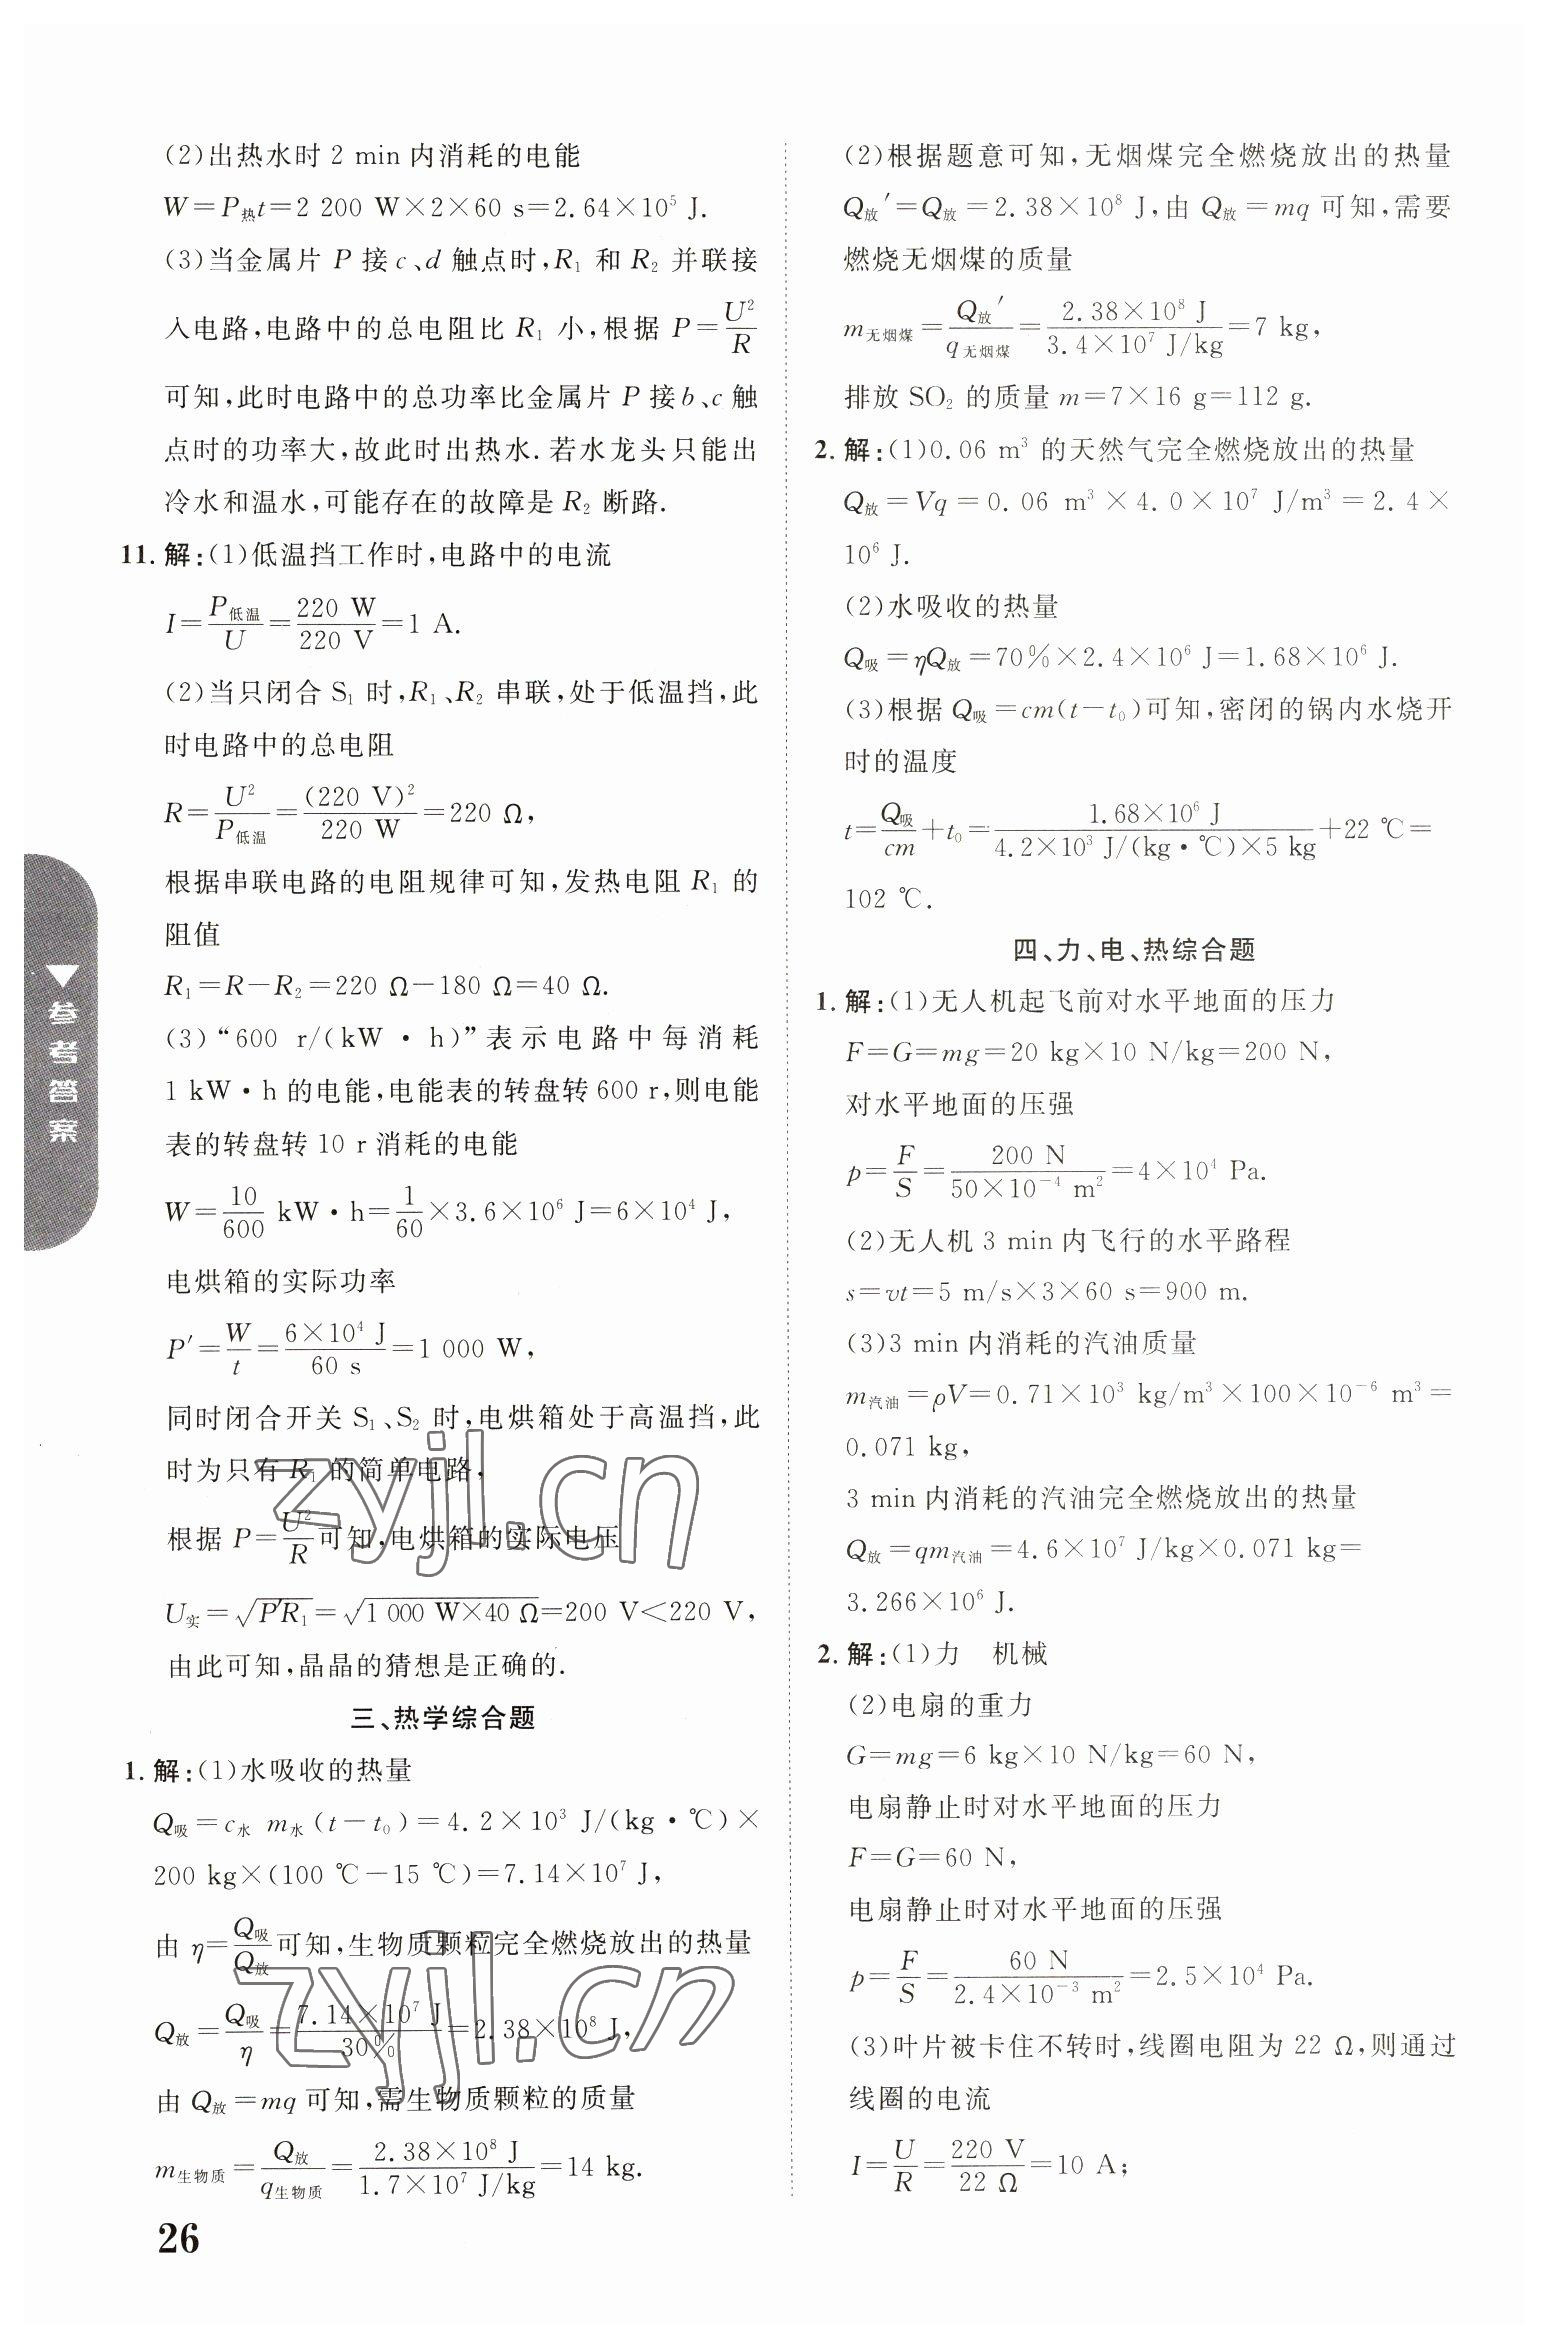 (2)出热水时 2 min 内消耗的电能
W=P热t=2 200 W×2×60 s=2.64×10⁵ J.
(3)当金属片 P 接 c、d 触点时,R₁ 和 R₂ 并联接
入电路,电路中的总电阻比 R₁ 小,根据 P=U²/R
可知,此时电路中的总功率比金属片 P 接 b、c 触
点时的功率大,故此时出热水.若水龙头只能出
冷水和温水,可能存在的故障是 R₂ 断路.
11.解:(1)低温挡工作时,电路中的电流
I=P低温/U=220 W/220 V=1 A.
(2)当只闭合 S₁ 时,R₁、R₂ 串联,处于低温挡,此
时电路中的总电阻
R=U²/P低温=(220 V)²/220 W=220 Ω,
根据串联电路的电阻规律可知,发热电阻 R₁ 的
阻值
R₁=R-R₂=220 Ω-180 Ω=40 Ω.
(3)“600 r/(kW·h)”表示电路中每消耗
1 kW·h 的电能,电能表的转盘转 600 r,则电能
表的转盘转 10 r 消耗的电能
W=10/600 kW·h=1/60×3.6×10⁶ J=6×10⁴ J,
电烘箱的实际功率
P′=W/t=6×10⁴ J/60 s=1 000 W,
同时闭合开关 S₁、S₂ 时,电烘箱处于高温挡,此
时为只有 R₁ 的简单电路,
根据 P=U²/R可知,电烘箱的实际电压
U实=√P′R₁=√1 000 W×40 Ω=200 V<220 V,
由此可知,晶晶的猜想是正确的.
三、热学综合题
1.解:(1)水吸收的热量
Q吸=c水 m水(t-t₀)=4.2×10³ J/(kg·℃)×
200 kg×(100 ℃-15 ℃)=7.14×10⁷ J,
由 η=Q吸/Q放可知,生物质颗粒完全燃烧放出的热量
Q放=Q吸/η=7.14×10⁷ J/30%=2.38×10⁸ J,
由 Q放=mq 可知,需生物质颗粒的质量
m生物质=Q放/q生物质=2.38×10⁸ J/1.7×10⁷ J/kg=14 kg.
26
(2)根据题意可知,无烟煤完全燃烧放出的热量
Q放′=Q放=2.38×10⁸ J,由 Q放=mq 可知,需要
燃烧无烟煤的质量
m无烟煤=Q放′/q无烟煤=2.38×10⁸ J/3.4×10⁷ J/kg=7 kg,
排放 SO₂ 的质量 m=7×16 g=112 g.
2.解:(1)0.06 m³ 的天然气完全燃烧放出的热量
Q放=Vq=0.06 m³×4.0×10⁷ J/m³=2.4×
10⁶ J.
(2)水吸收的热量
Q吸=ηQ放=70%×2.4×10⁶ J=1.68×10⁶ J.
(3)根据 Q吸=cm(t-t₀)可知,密闭的锅内水烧开
时的温度
t=Q吸/cm+t₀=1.68×10⁶ J/4.2×10³ J/(kg·℃)×5 kg+22 ℃=
102 ℃.
四、力、电、热综合题
1.解:(1)无人机起飞前对水平地面的压力
F=G=mg=20 kg×10 N/kg=200 N,
对水平地面的压强
p=F/S=200 N/50×10⁻⁴ m²=4×10⁴ Pa.
(2)无人机 3 min 内飞行的水平路程
s=vt=5 m/s×3×60 s=900 m.
(3)3 min 内消耗的汽油质量
m汽油=ρV=0.71×10³ kg/m³×100×10⁻⁶ m³=
0.071 kg,
3 min 内消耗的汽油完全燃烧放出的热量
Q放=qm汽油=4.6×10⁷ J/kg×0.071 kg=
3.266×10⁶ J.
2.解:(1)力 机械
(2)电扇的重力
G=mg=6 kg×10 N/kg=60 N,
电扇静止时对水平地面的压力
F=G=60 N,
电扇静止时对水平地面的压强
p=F/S=60 N/2.4×10⁻³ m²=2.5×10⁴ Pa.
(3)叶片被卡住不转时,线圈电阻为 22 Ω,则通过
线圈的电流
I=U/R=220 V/22 Ω=10 A;
▼参考答案
zyjl.cn
zyjl.cn